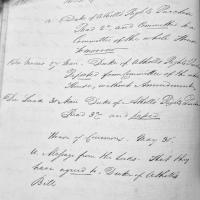 a Duke of Atholls Rights Purchase
Read 2d and Committed to
Committee of the whole House
tomorrow
Duke of Atholls Rights
Reported from Committee of the whole
House, without Amendment
Duke of Atholls Rights
Read 3d and passed
House of Commons. May 31.
a Message from the Lords. That they
have agreed to Duke of Atholls
Bill